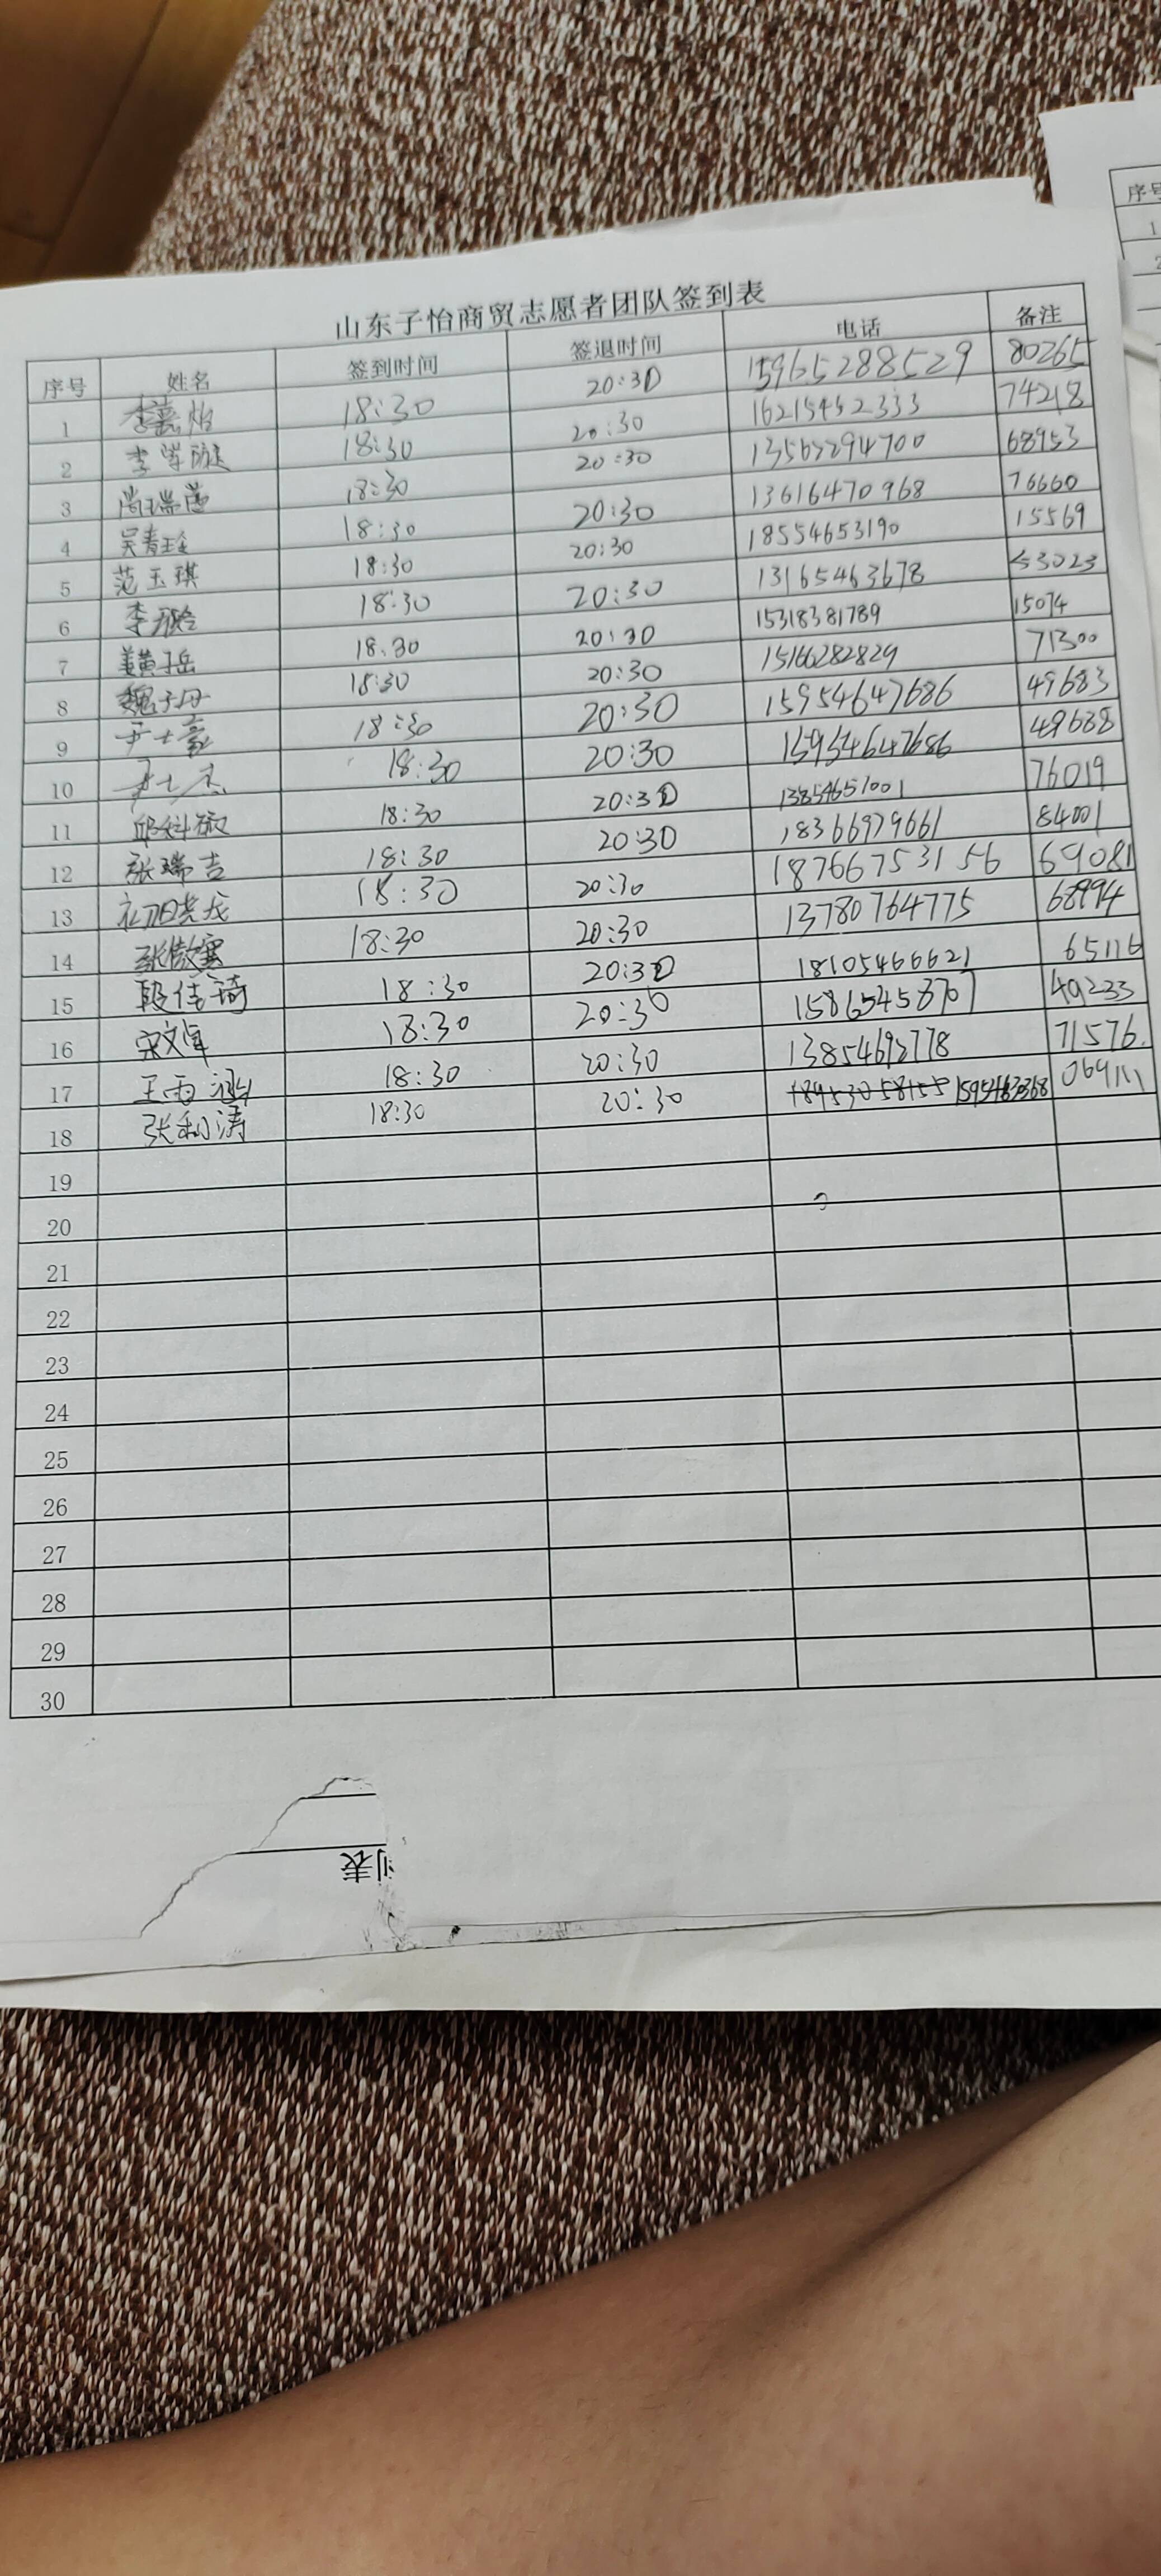 山东子怡商贸志愿者团队签到表
序号 姓名 签到时间 签退时间 电话 备注
1 李嘉怡 18:30 20:30 15965288529 80265
2 李 18:30 20:30 16215452333 74218
3 18:30 20:30 68953
4 吴青 18:30 20:30 13616470968 76660
5 范玉琪 18:30 20:30 18554653190 15569
6 李 18:30 20:30 13165463678 53023
7 姜黄子岳 18:30 20:30 15318381789 15074
8 魏子丹 18:30 20:30 15166282829 71300
9 尹士豪 18:30 20:30 15954647686 49683
10 尹士杰 18:30 20:30 15954647686 49688
11 邱科 18:30 20:30 13854651001 76019
12 张瑞吉 18:30 20:30 18366979661 84001
13 18:30 20:30 18766753156 69081
14 张傲寒 18:30 20:30 13780764775 68994
15 段佳琦 18:30 20:30 18105466621 65116
16 宋文 18:30 20:30 15865458707 49233
17 王雨涵 18:30 20:30 13854692778 71576.
18 张利涛 18:30 20:30 18953058155 069111
19
20
21
22
23
24
25
26
27
28
29
30
到表
序号
1
2